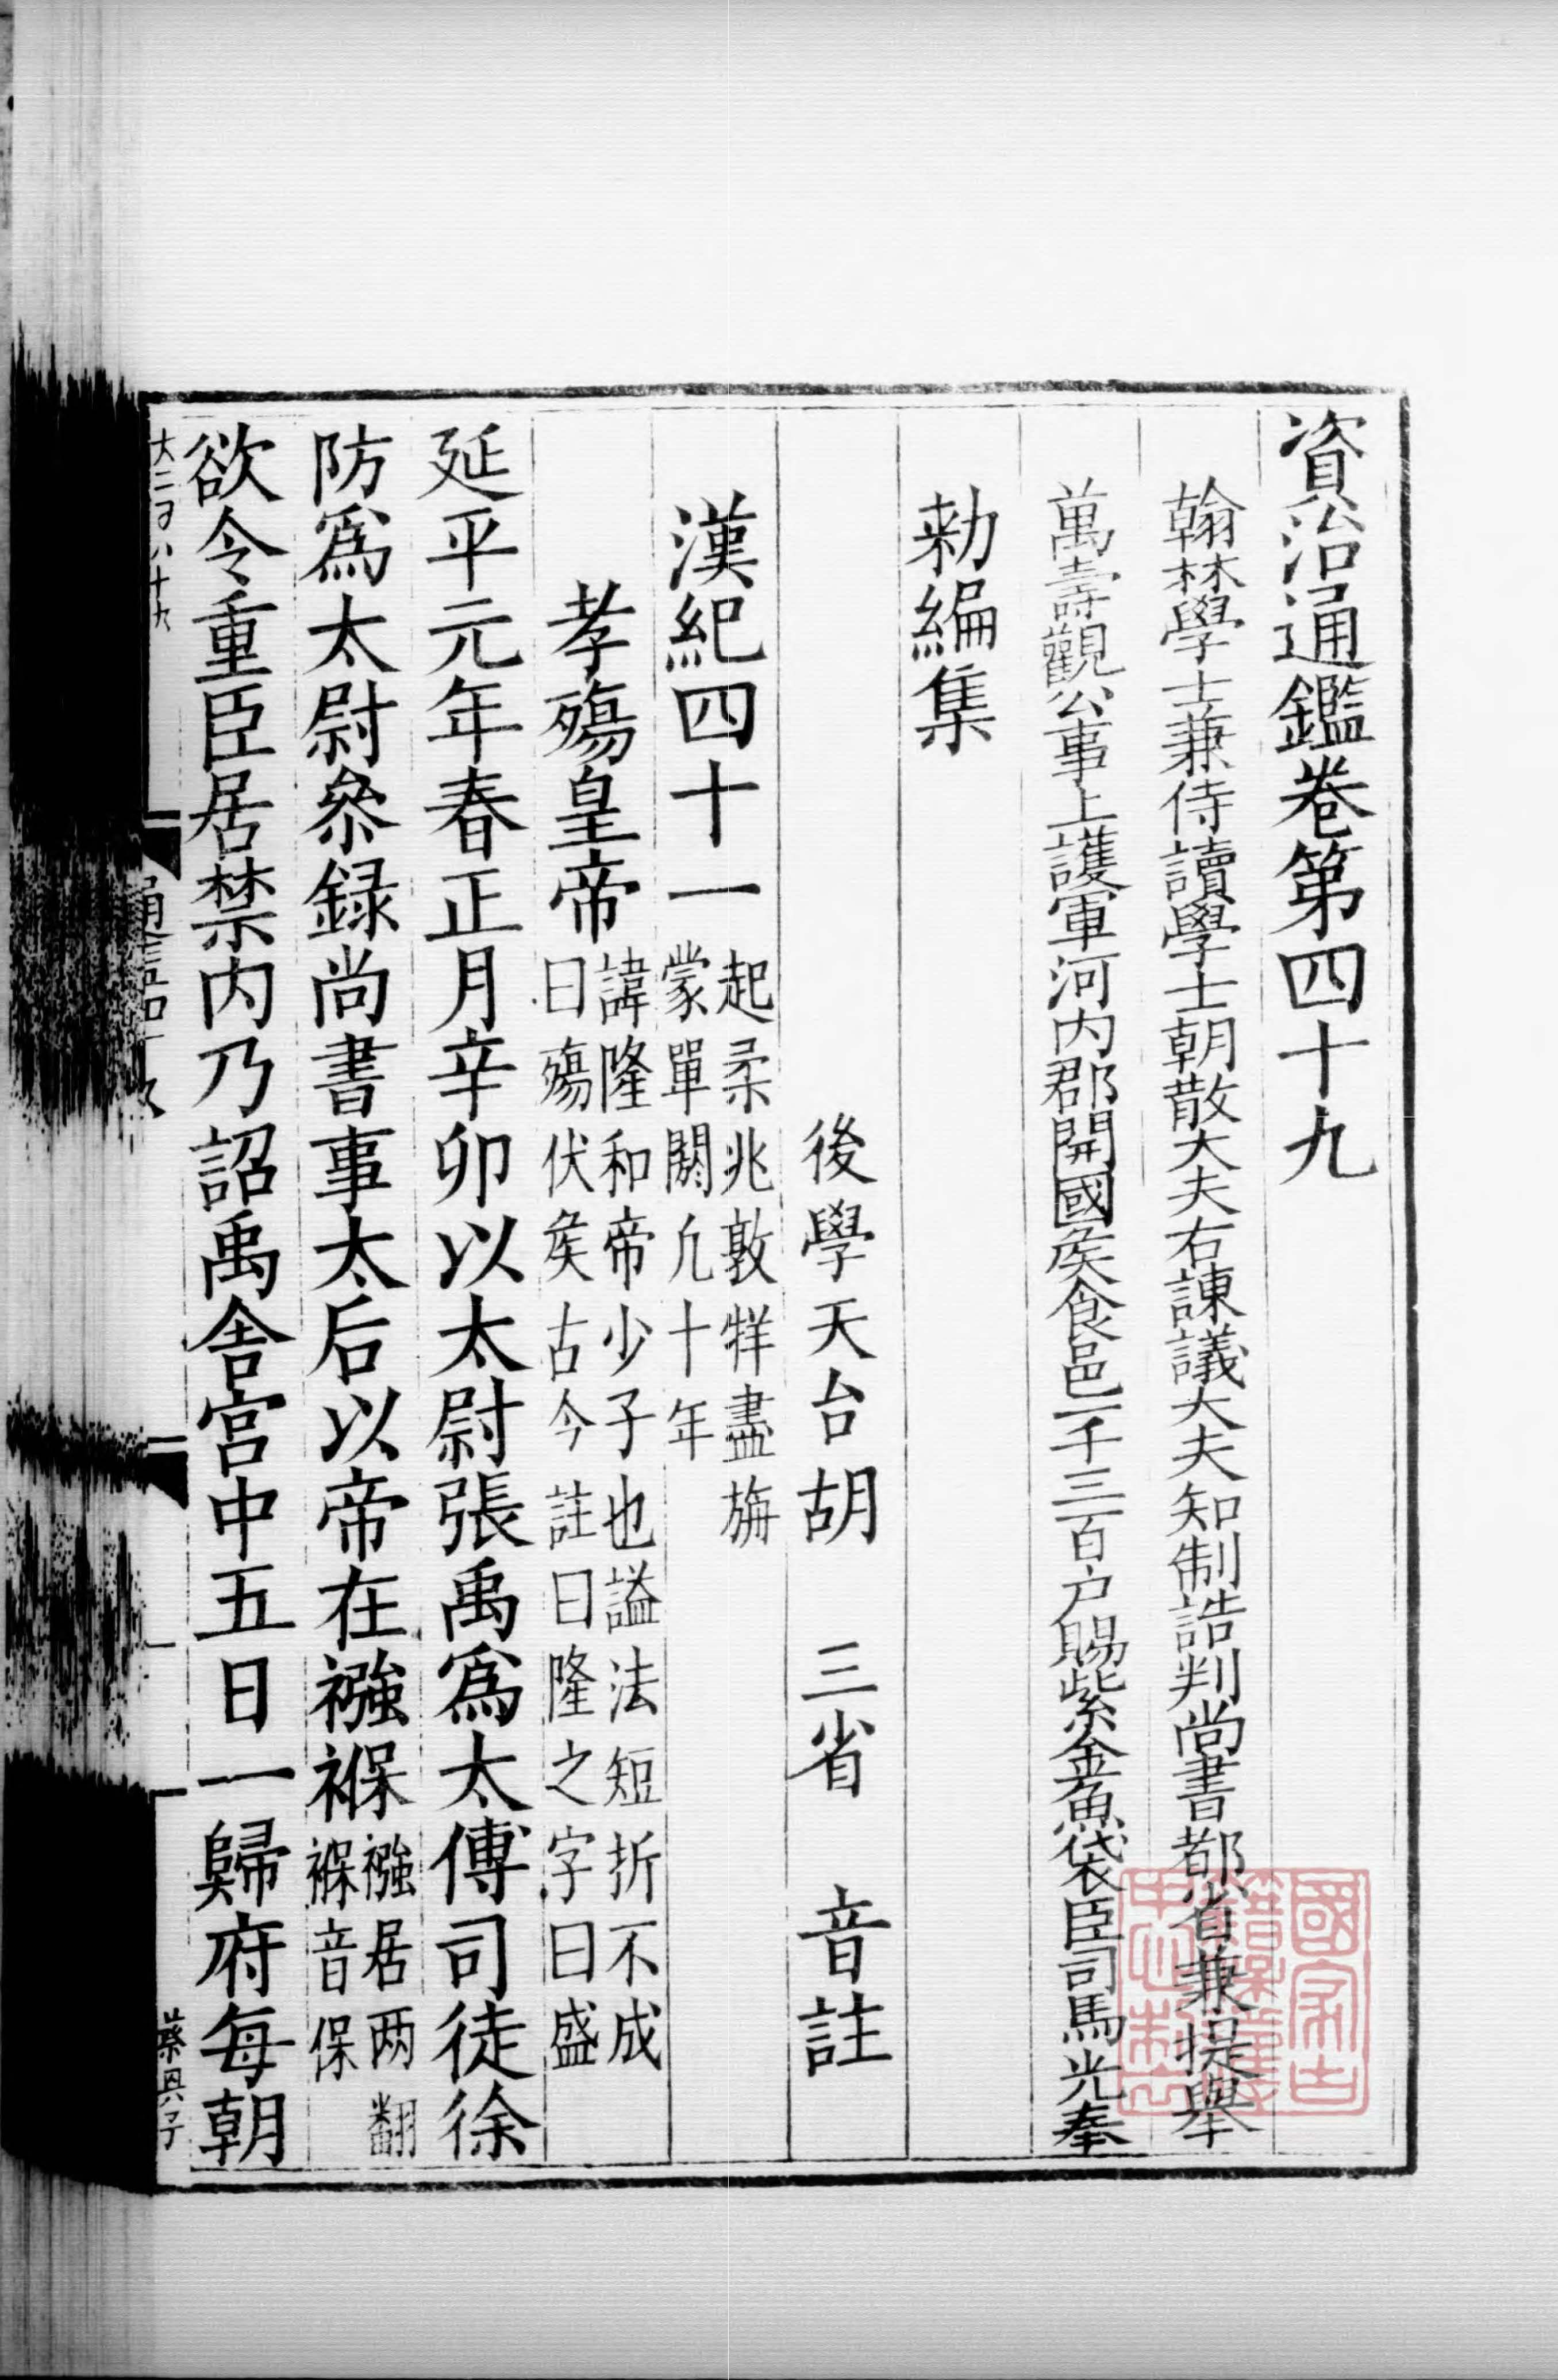 資治通鑑卷第四十九
翰林學士兼侍讀學士朝散大夫右諫議大夫知制誥判尚書都省兼提舉
萬壽觀公事上護軍河内郡開國矦食邑一千三百户賜紫金魚袋臣司馬光奉
勑編集
後學天台胡 三省 音註
漢紀四十一 起柔兆敦牂盡旃
蒙單閼凢十年
孝殤皇帝 諱隆和帝少子也謚法短折不成
曰殤伏矦古今註曰隆之字曰盛
延平元年春正月辛卯以太尉張禹爲太傅司徒徐
防爲太尉叅録尚書事太后以帝在襁褓 襁居两翻
褓音保
欲令重臣居禁内乃詔禹舎宫中五日一歸府每朝
國家古
籍藏